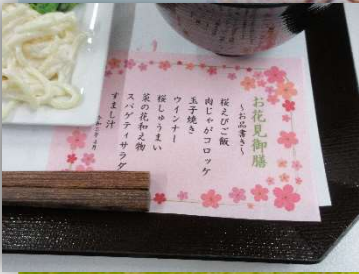 お花見御膳
～お品書き～
桜えびご飯
肉じゃがコロッケ
玉子焼き
ウインナー
桜しゅうまい
菜の花和え物
スパゲティサラダ
すまし汁